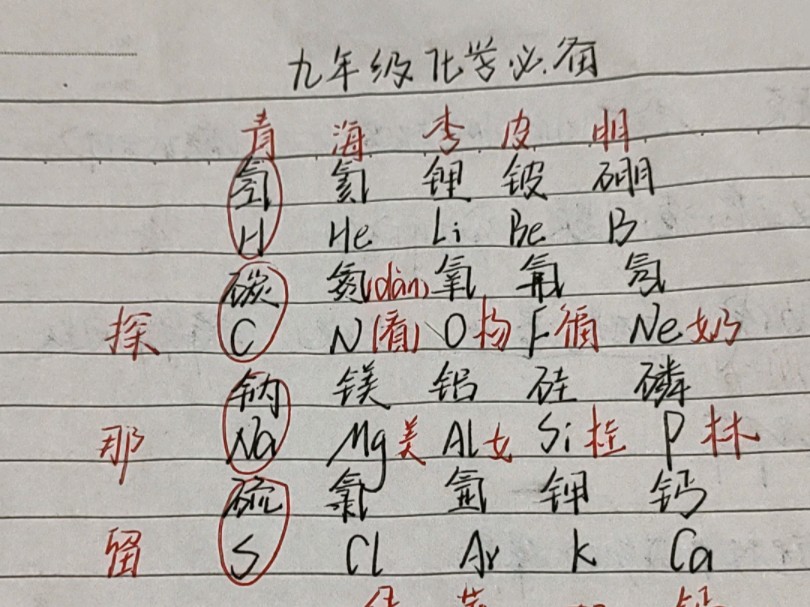 九年级化学必备
青 海 李 皮 明
氢 氦 锂 铍 硼
H He Li Be B
碳 氮(dàn) 氧 氟 氖
探 C N(看) O 杨 F 福 Ne 奶
钠 镁 铝 硅 磷
那 Na Mg 美 Al 女 Si 桂 P 林
硫 氯 氩 钾 钙
留 S Cl Ar K Ca